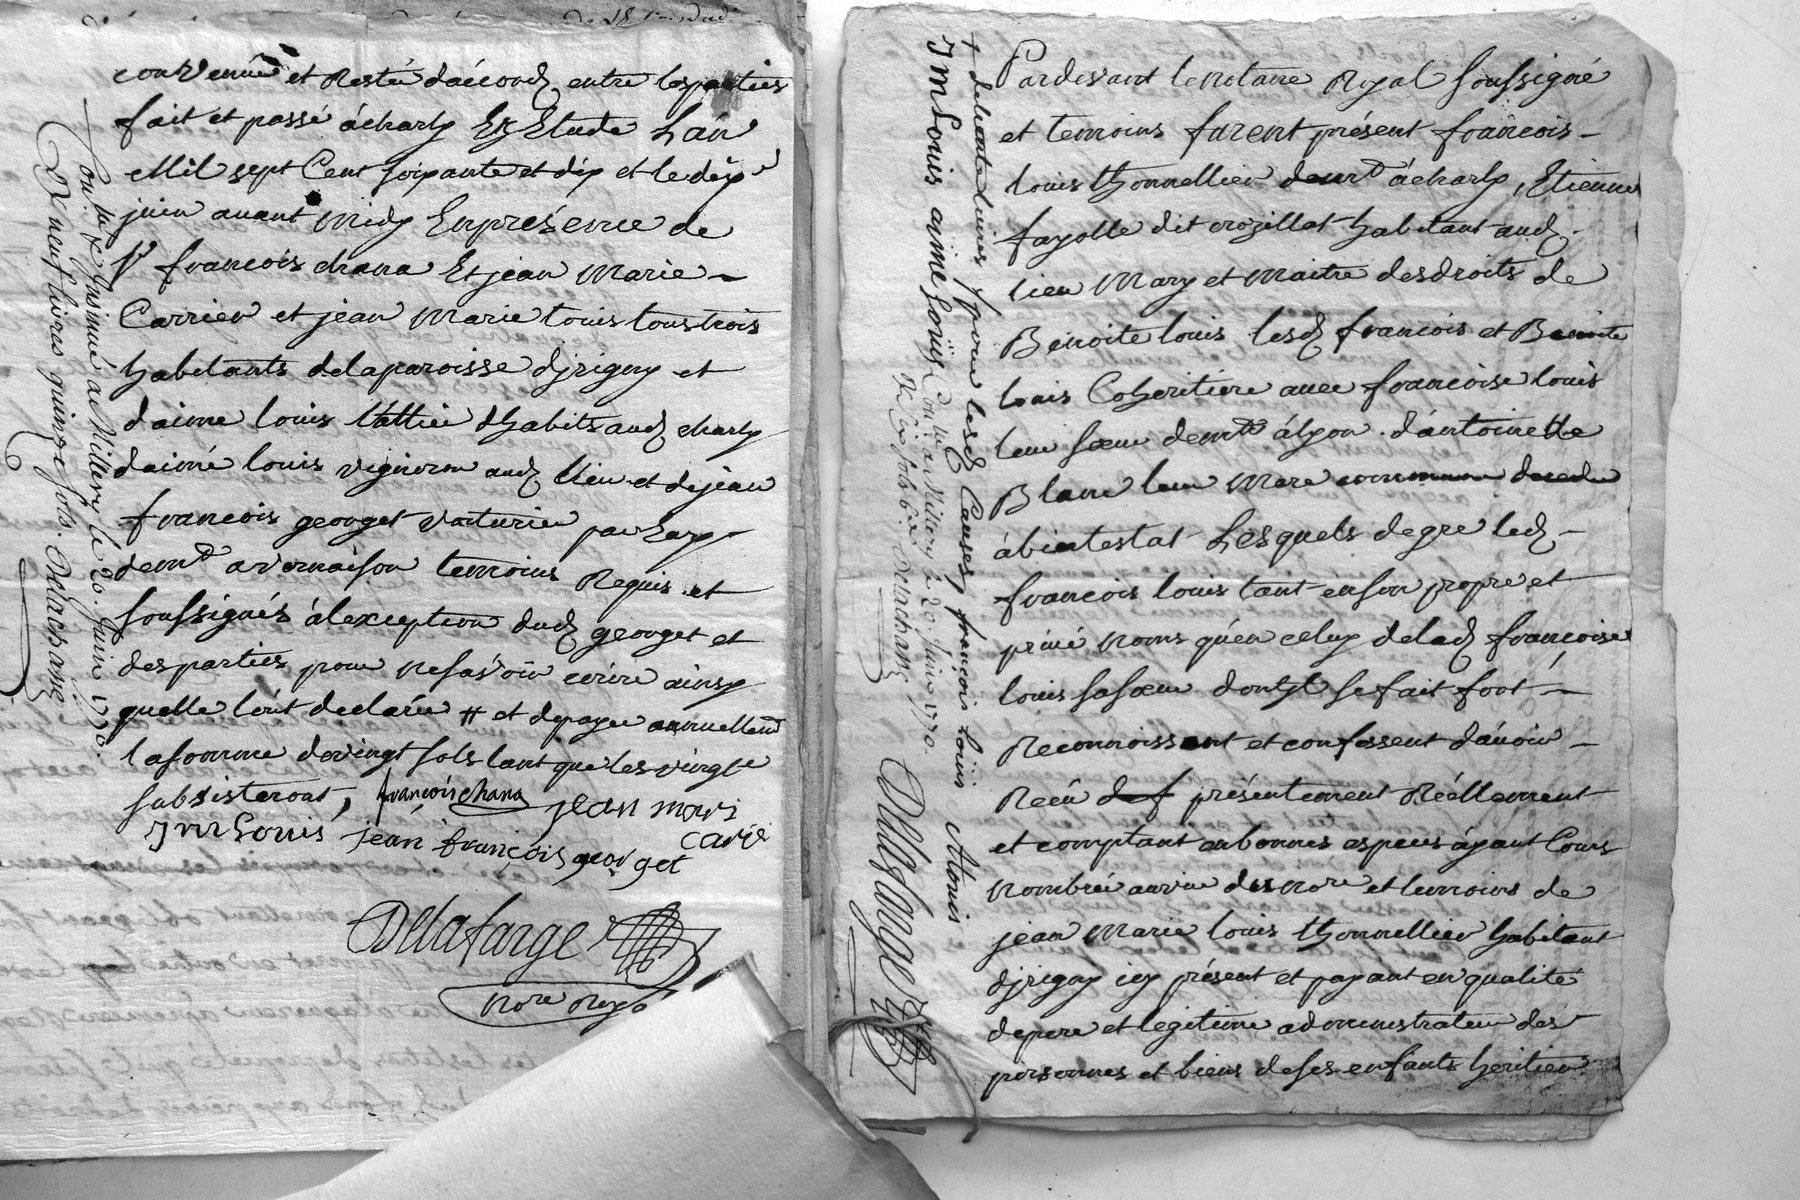 convenüe et Resté daccord entre lesparties
fait et passé àcharly Et Etude Lan
Mil sept Cent soixante et dix et ledix
juin avant midy Enprésence de
sr francois chana Et jean Marie
Carrier et jean Marie Louis tous trois
habitants delaparoisse djrigny et
daimé louis tallieur dhabits aud charly
daimé louis vigneron aud lieu et dejean
francois georget voiturier par eau
demt avernaison temoins Requis et
soussignés àlexception dud georget et
desparties pour nesavoir ecrire ainsy
quelle lont declarée # et depayer annuellemt
lasomme devingt sols tant que les vingt
subsisteront, françois chana jean mari
carié
J m Louis jean françois georget
Delafarge
Nore Royal
Conlle & Insinué a Millery le 20. Juin 1770.
R neuf livres quinze sols. Delachassé
Pardevant lenotaire Royal soussigné
et temoins furent présent francois
louis thonnellier demt àcharly, Etienne
fayolle dit crozillat habitant aud
lieu Mary et Maitre desdroits de
Benoite louis lesd francois et Benoite
louis Coheritiere avec francoise louis
leur sœur demte àlyon d'antoinette
Blanc leur Mere commune decedée
àbintestat Lesquels degré led
francois louis tant enson propre et
privé noms qu'en celuy delad françoise
louis sasœur dontjl se fait fort
Reconnoissent et confessent d'avoir
Reçu présentement Réellement
et comptant enbonnes especes ayant Cours
nombrée auvue des nore et temoins de
jean Marie louis thonnellier habitant
djrigny icy présent et payant en qualité
depere et legitime administrateur des
personnes et biens deses enfants heritier
+ delacte / pour lesd Causes francois Louis Alouis
J m Louis aimé Louis Delafarge
Conlle a Millery le 20 Juin 1770.
Delachassé